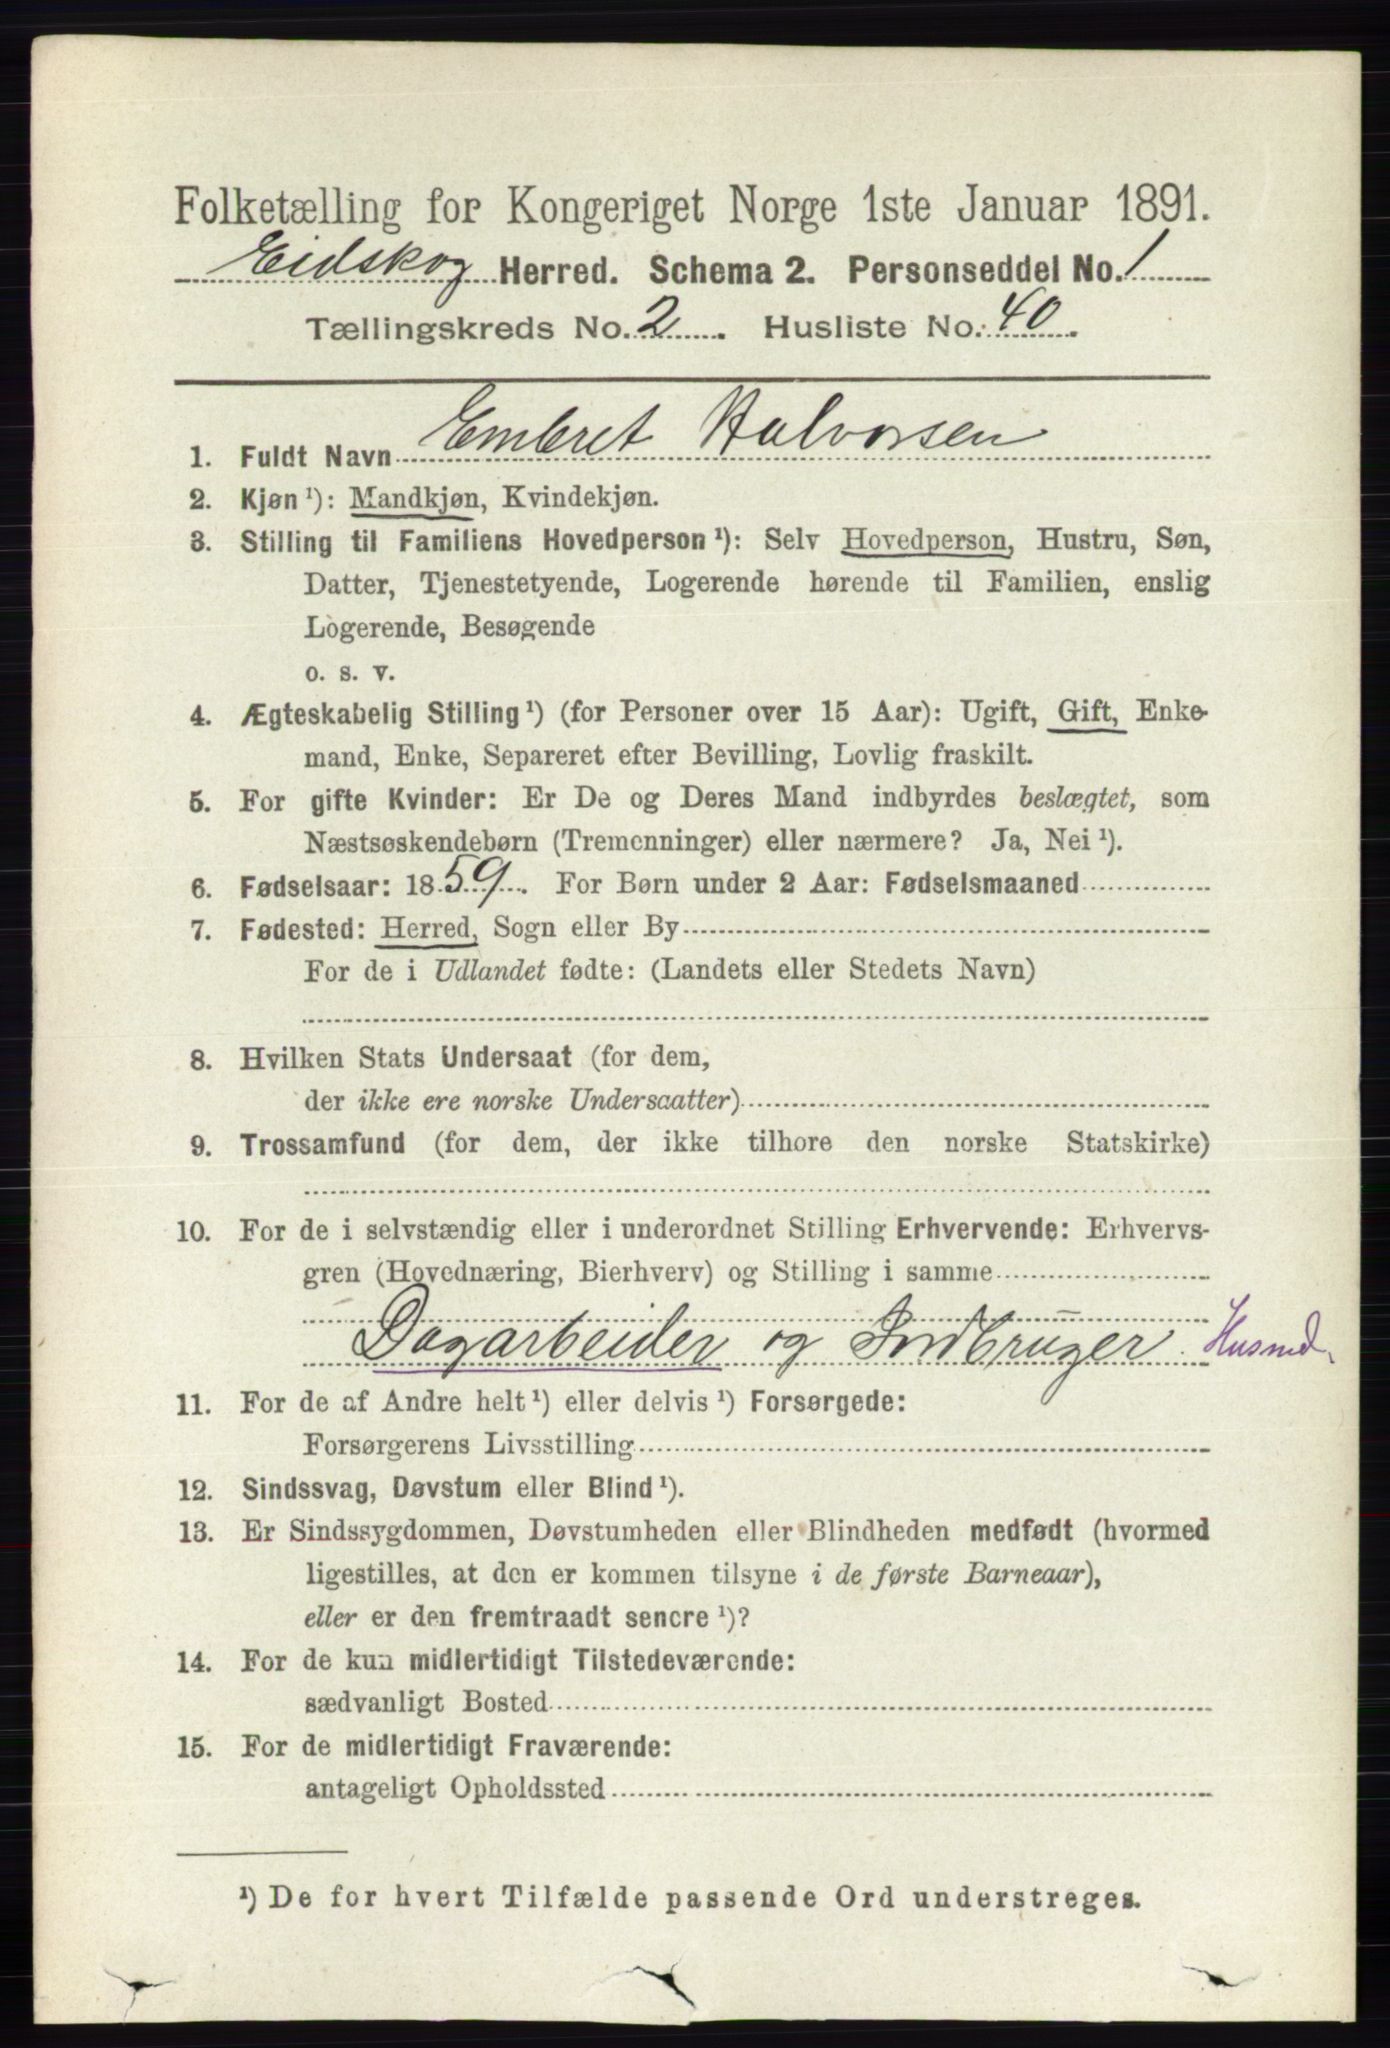 Folketælling for Kongeriget Norge 1ste Januar 1891.
Eidskog Herred. Schema 2. Personseddel No. 1
Tællingskreds No. 2. Husliste No. 40.
1. Fuldt Navn Embret Halvorsen
2. Kjøn ¹): Mandkjøn, Kvindekjøn.
3. Stilling til Familiens Hovedperson ¹): Selv Hovedperson, Hustru, Søn,
Datter, Tjenestetyende, Logerende hørende til Familien, enslig
Logerende, Besøgende
o. s. v.
4. Ægteskabelig Stilling ¹) (for Personer over 15 Aar): Ugift, Gift, Enke-
mand, Enke, Separeret efter Bevilling, Lovlig fraskilt.
5. For gifte Kvinder: Er De og Deres Mand indbyrdes beslægtet, som
Næstsøskendebørn (Tremenninger) eller nærmere? Ja, Nei ¹).
6. Fødselsaar: 1859. For Børn under 2 Aar: Fødselsmaaned
7. Fødested: Herred, Sogn eller By
For de i Udlandet fødte: (Landets eller Stedets Navn)
8. Hvilken Stats Undersaat (for dem,
der ikke ere norske Undersaatter)
9. Trossamfund (for dem, der ikke tilhøre den norske Statskirke)
10. For de i selvstændig eller i underordnet Stilling Erhvervende: Erhvervs-
gren (Hovednæring, Bierhverv) og Stilling i samme
Dagarbeider og Jordbruger. Husmd.
11. For de af Andre helt ¹) eller delvis ¹) Forsørgede:
Forsørgerens Livsstilling
12. Sindssvag, Døvstum eller Blind ¹).
13. Er Sindssygdommen, Døvstumheden eller Blindheden medfødt (hvormed
ligestilles, at den er kommen tilsyne i de første Barneaar),
eller er den fremtraadt senere ¹)?
14. For de kun midlertidigt Tilstedeværende:
sædvanligt Bosted
15. For de midlertidigt Fraværende:
antageligt Opholdssted
¹) De for hvert Tilfælde passende Ord understreges.